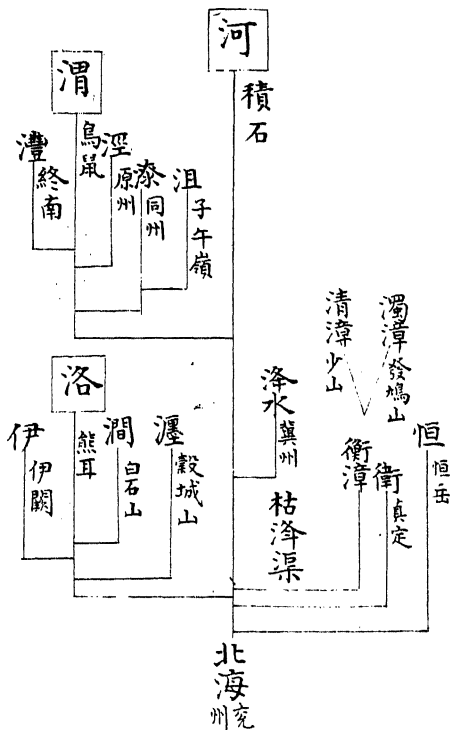 河
積石
渭
鳥鼠
灃
終南
涇
原州
漆
同州
沮
子午嶺
洛
熊耳
伊
伊闕
澗
白石山
瀍
穀城山
洚水
冀州
枯洚渠
清漳少山
濁漳發鳩山
衡漳
衛
真定
恒
恒岳
北海
兖州